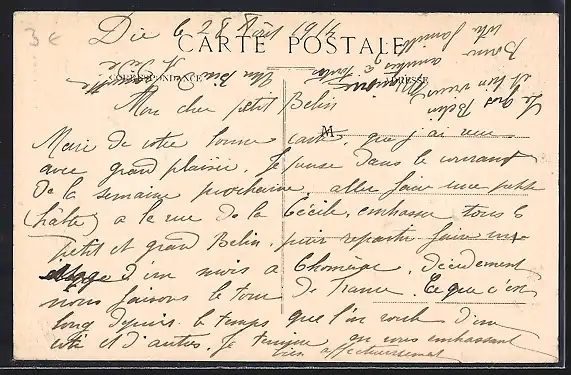 3€
Die le 28 Août 1914
CARTE POSTALE
CORRESPONDANCE
ADRESSE
Mon cher petit Belin
M
Merci de votre bonne carte, que j'ai reçue
avec grand plaisir. Je pense dans le courant
De la semaine prochaine, aller faire une petite
(halte) a la rue de la Cécile, embrasser tous le
petit et grand Belin, puis repartir faire un
d'un mois a Chomérac. Décidement
nous faisons le tour de France. Ce que c'est
long depuis le temps que l'on roule d'un
côté et d'autres. Je termine en vous embrassant
bien affectueusement
Le Gros Belin
et bien
Bonne
amitiés à toute
votre famille